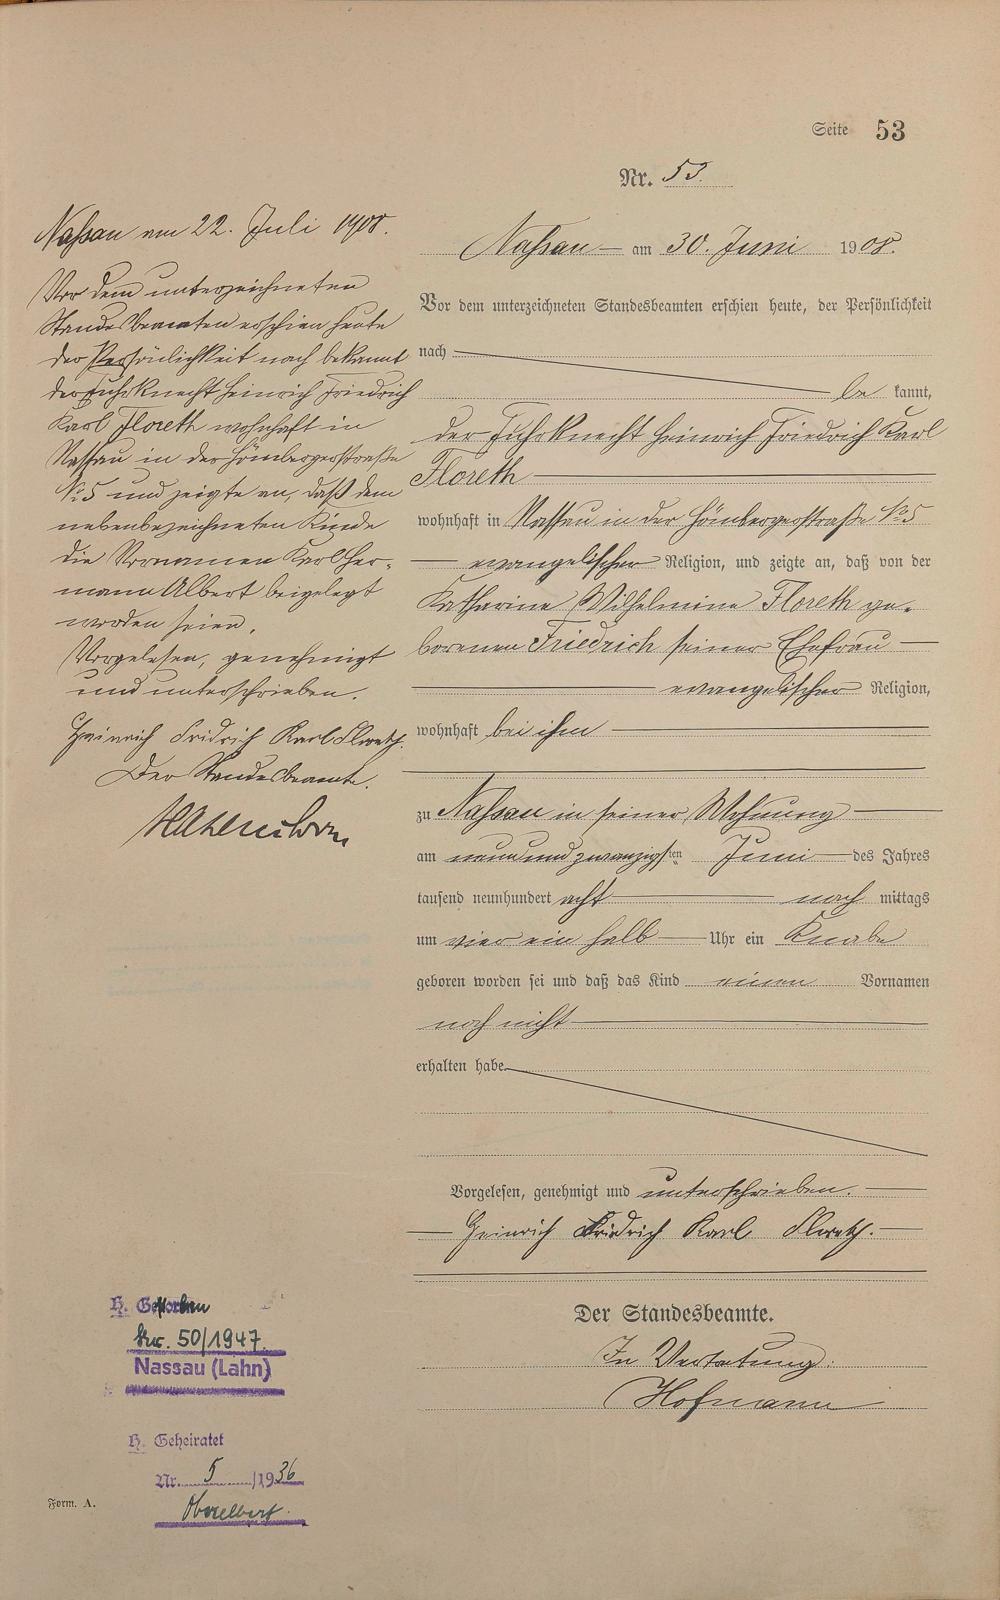 Seite 53
Nr. 53.
Nassau am 22. Juli 1908.
Vor dem unterzeichneten
Standesbeamten erschien heute
der Persönlichkeit nach bekannt
der Fuhrknecht Heinrich Friedrich
Karl Floreth wohnhaft in
Nassau in der Hömbergerstraße
No 5 und zeigte an, daß dem
nebenbezeichneten Kinde
die Vornamen Karl Her-
mann Albert beigelegt
worden seien.
Vorgelesen, genehmigt
und unterschrieben.
Heinrich Fridrich Karl Floreth.
Der Standesbeamte.
Nassau am 30. Juni 1908.
Vor dem unterzeichneten Standesbeamten erschien heute, der Persönlichkeit
nach
be kannt,
der Fuhrknecht Heinrich Friedrich Karl
Floreth
wohnhaft in Nassau in der Hömbergerstraße No 5
evangelischer Religion, und zeigte an, daß von der
Katharine Wilhelmine Floreth ge-
borenen Friedrich seiner Ehefrau
evangelischer Religion,
wohnhaft bei ihm
zu Nassau in seiner Wohnung
am neunundzwanzigsten Juni des Jahres
tausend neunhundert acht nach mittags
um vier ein halb Uhr ein Knabe
geboren worden sei und daß das Kind einen Vornamen
noch nicht
erhalten habe.
Vorgelesen, genehmigt und unterschrieben.
Heinrich Fridrich Karl Floreth.
Der Standesbeamte.
In Vertretung:
Hofmann
H. Gestorben
Nr. 50/1947
Nassau (Lahn)
H. Geheiratet
Nr. 5 /1936
Oberelbert
Form. A.